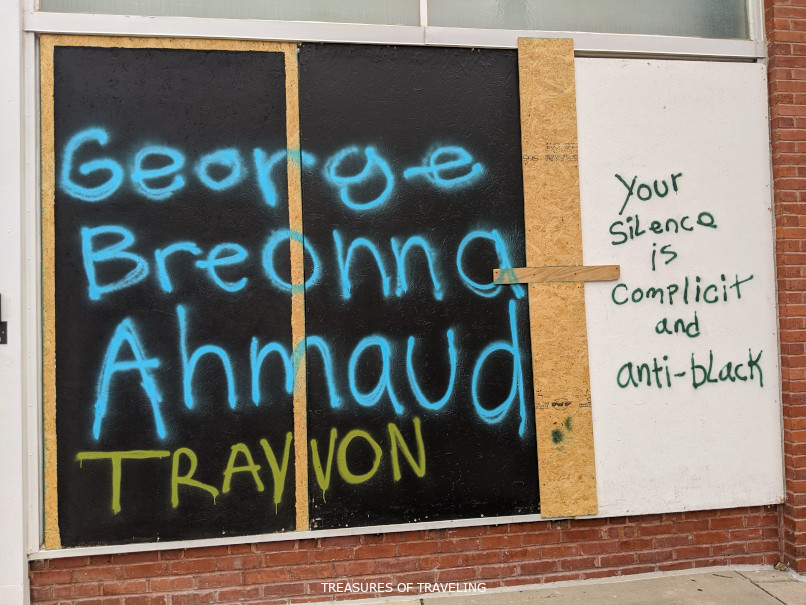 George
Breonna
Ahmaud
TRAYVON
Your
Silence
is
Complicit
and
anti-black
TREASURES OF TRAVELING